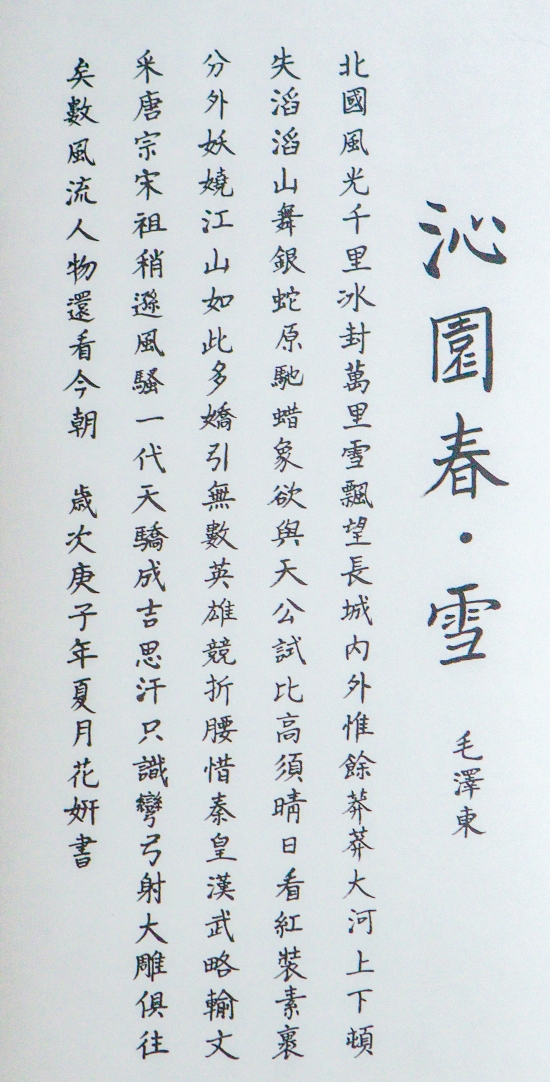 沁園春·雪
毛澤東
北國風光千里冰封萬里雪飄望長城内外惟餘莽莽大河上下頓
失滔滔山舞銀蛇原馳蜡象欲與天公試比高須晴日看紅裝素裹
分外妖嬈江山如此多嬌引無數英雄競折腰惜秦皇漢武略輸文
采唐宗宋祖稍遜風騷一代天驕成吉思汗只識彎弓射大雕俱往
矣數風流人物還看今朝 歲次庚子年夏月花妍書